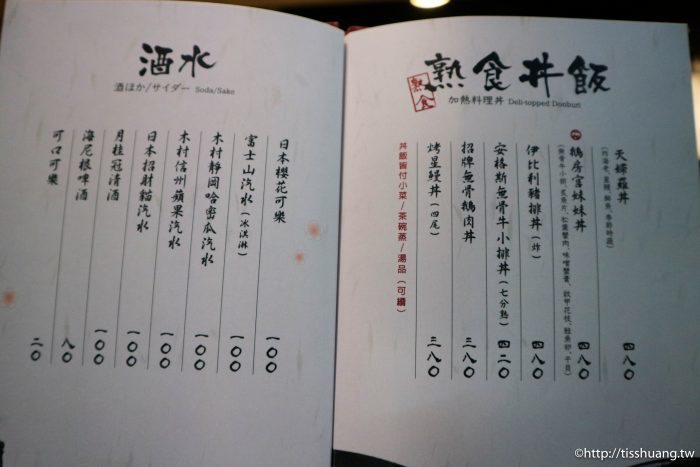 酒水
酒ほか/サイダー Soda/Sake
日本櫻花可樂 一〇〇
富士山汽水（冰淇淋） 一〇〇
木村靜岡哈密瓜汽水 一〇〇
木村信州蘋果汽水 一〇〇
日本招財貓汽水 一〇〇
月桂冠清酒 一〇〇
海尼根啤酒 八〇
可口可樂 二〇
熟食丼飯
熟食
加熱料理丼 Deli-topped Donburi
天婦羅丼 四八〇
鵝房宮妹妹丼 四八〇
伊比利豬排丼（炸） 四八〇
安格斯無骨牛小排丼（七分熟） 四二〇
招牌無骨鵝肉丼 三八〇
烤星鰻丼（四尾） 三八〇
丼飯皆付小菜/茶碗蒸/湯品（可續）
©http://tisshuang.tw